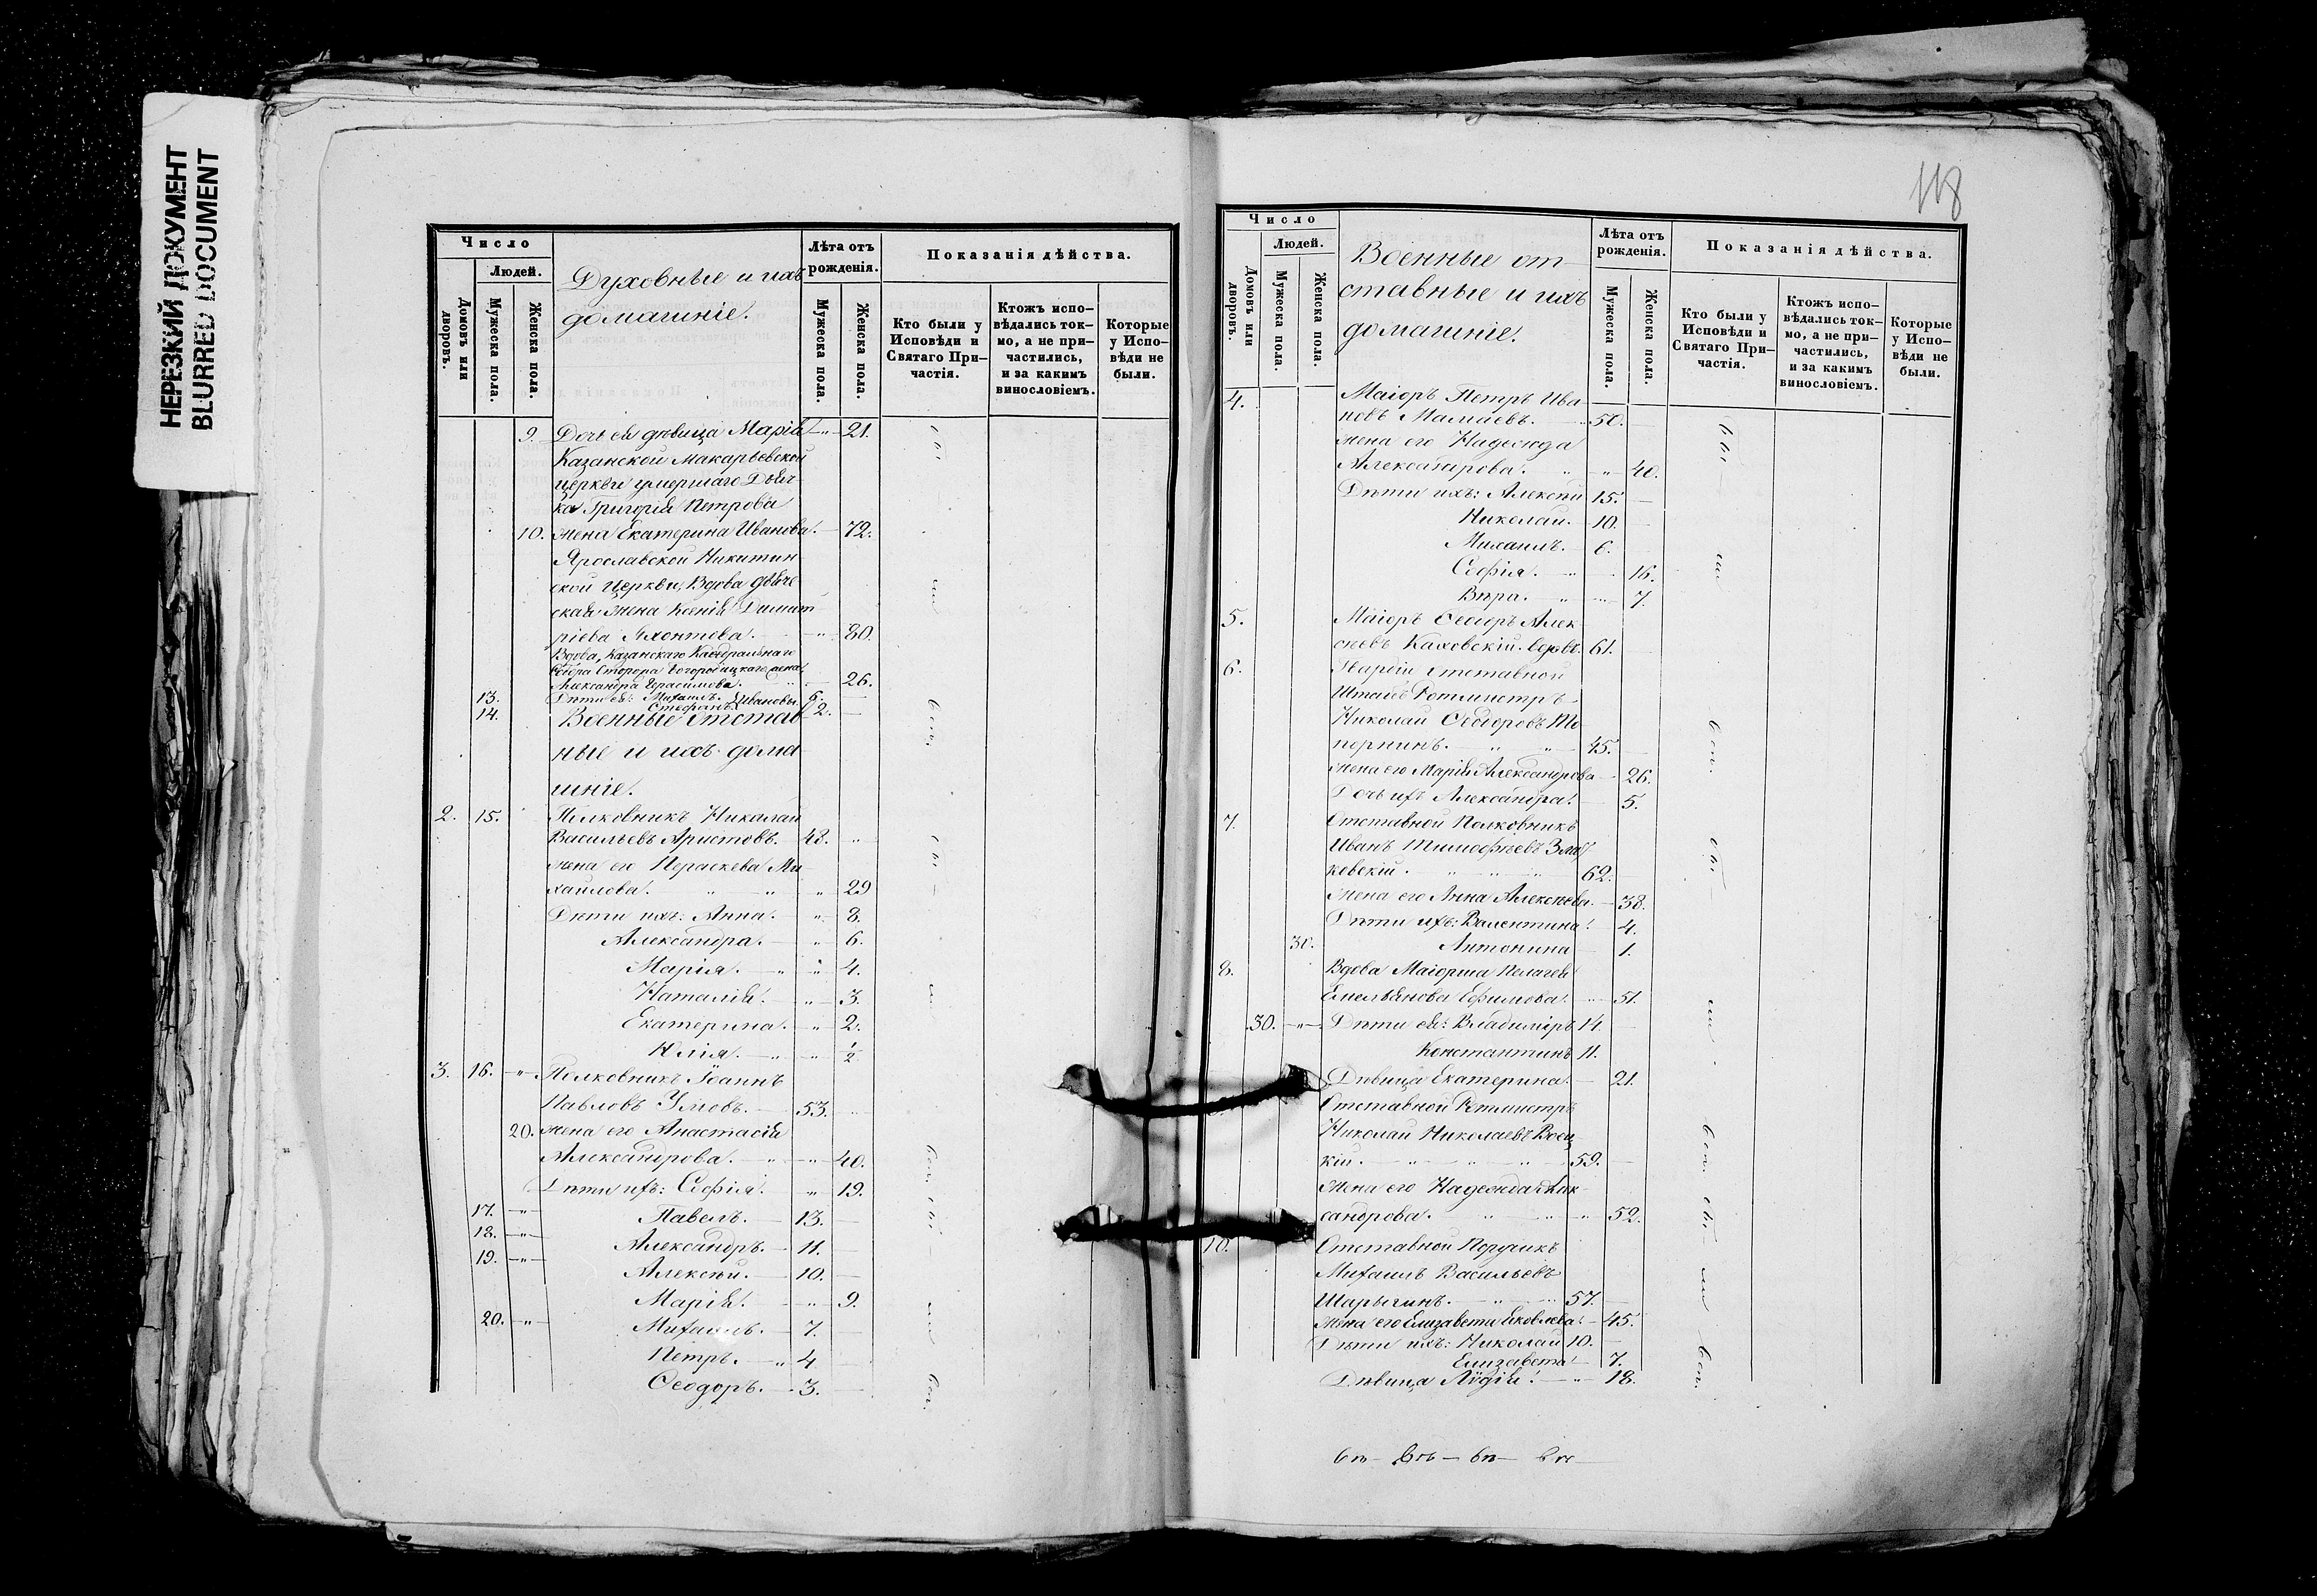 НЕРЕЗКИЙ ДОКУМЕНТ
BLURRED DOCUMENT
Число
Людей.
Домовъ или дворовъ.
Мужеска пола.
Женска пола.
Духовные и ихъ
домашніе.
Лѣта отъ рожденія.
Мужеска пола.
Женска пола.
Показанія дѣйства.
Кто были у Исповѣди и Святаго Причастія.
Ктожъ исповѣдались токмо, а не причастились, и за какимъ винословіемъ.
Которые у Исповѣди не были.
9. Дочь ея дѣвица Марія 21.
Казанской Макарьевской
церкви умершаго Дьяч-
ка Григорія Петрова
10. жена Екатерина Иванова. 72.
Ярославской Никитин-
ской Церкви, Вдова дьяче-
ская жена Ксенія Димит-
ріева Яхонтова. 80.
Вдова, Казанскаго Каѳедральнаго
Собора Сторожа Богородицкаго жена
Александра Герасимова. 26.
13. Дѣти ея: Михаилъ. Ивановы. 6.
14. Стефанъ. 2.
Военные отстав-
ные и ихъ дома-
шніе.
2. 15. Полковникъ Николай
Васильевъ Аристовъ. 48. "
жена его Параскева Ми-
хайлова. " " " 29
Дѣти ихъ: Анна. " 8.
Александра. " 6.
Марія. " " 4.
Наталія. " 3.
Екатерина. " 2.
Юлія. " " 1/2
3. 16. " Полковникъ Іоаннъ
Павловъ Умовъ. 53.
20. жена его Анастасія
Александрова. " " 40.
Дѣти ихъ: Софія. " 19.
17. " Павелъ. 13.
18. " Александръ. 11.
19. " Алексѣй. 10.
Марія. " 9.
20. " Михаилъ. 7.
Петръ. " 4
Ѳеодоръ. 3.
118
Число
Людей.
Домовъ или дворовъ.
Мужеска пола.
Женска пола.
Военные от-
ставные и ихъ
домашніе.
Лѣта отъ рожденія.
Мужеска пола.
Женска пола.
Показанія дѣйства.
Кто были у Исповѣди и Святаго Причастія.
Ктожъ исповѣдались токмо, а не причастились, и за какимъ винословіемъ.
Которые у Исповѣди не были.
4. Маіоръ Петръ Ива-
новъ Мамаевъ. 50.
жена его Надежда
Александрова. " " 40.
Дѣти ихъ: Алексѣй 15.
Николай. 10.
Михаилъ. 6.
Софія. " 16.
Вѣра. " " 7.
5. Маіоръ Ѳеодоръ Алек-
сѣевъ Каховскій. вдовъ. 61.
6. Гвардіи отставной
Штабъ Ротмистръ
Николай Ѳеодоровъ
45.
жена его Марія Александрова 26.
Дочь ихъ Александра. 5.
7. Отставной Полковникъ
Иванъ Тимофѣевъ
62.
жена его Анна Алексѣева. 38.
Дѣти ихъ: Валентина. 4.
30. Антонина 1.
8. Вдова Маіорша Пелагея
Емельянова Ефимова. 51.
30. " Дѣти ея: Владиміръ 14.
Константинъ 11.
Дѣвица Екатерина. 21.
Отставной Ротмистръ
Николай Николаевъ
кій. " " " 59.
жена его Надежда Алек-
сандрова. " " " 52.
10. Отставной Поручикъ
Михаилъ Васильевъ
Шарыгинъ. " " 57.
жена его Елизавета Яковлева. 45.
Дѣти ихъ: Николай 10.
Елизавета 7.
Дѣвица Лидія. " 18.